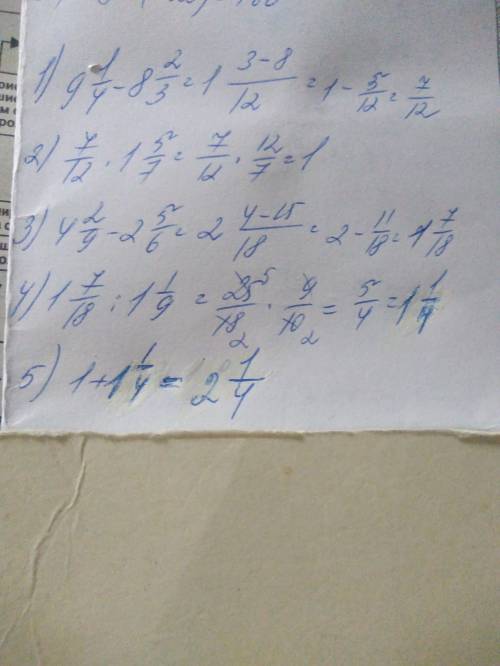 1) 9 1/4 - 8 2/3 = 1 (3-8)/12 = 1 - 5/12 = 7/12
2) 7/12 · 1 5/7 = 7/12 · 12/7 = 1
3) 4 2/9 - 2 5/6 = 2 (4-15)/18 = 2 - 11/18 = 1 7/18
4) 1 7/18 : 1 1/9 = 25 5/18 2 · 9/10 2 = 5/4 = 1 1/4
5) 1 + 1 1/4 = 2 1/4